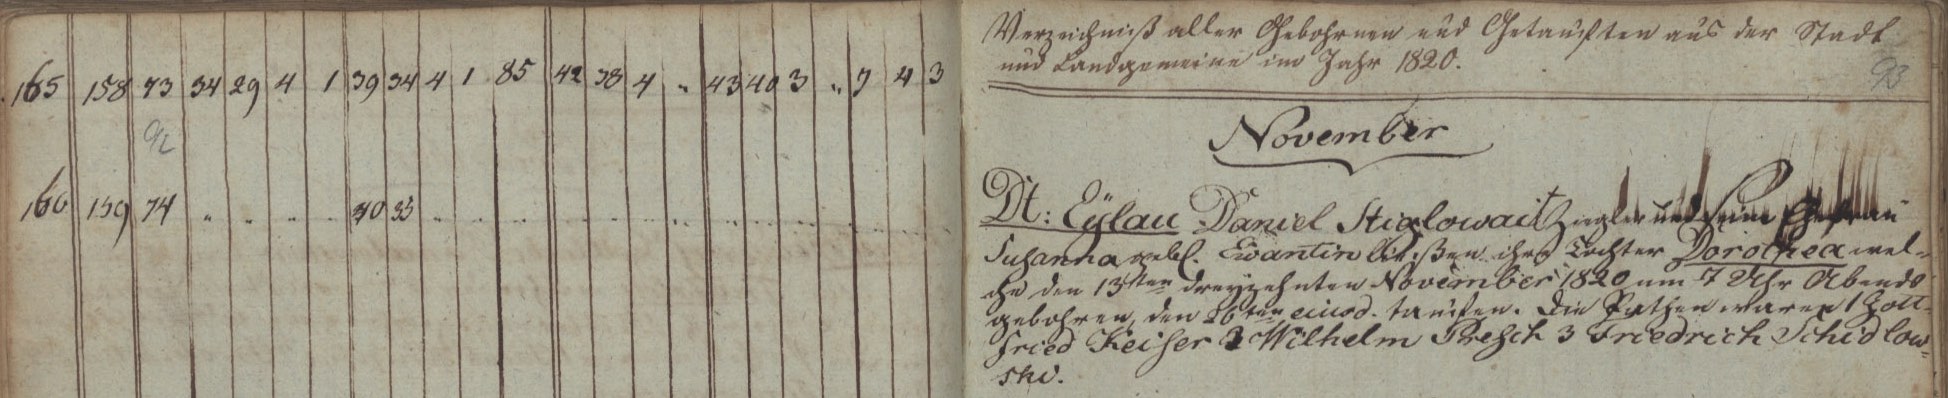 165 158 73 34 29 4 1 39 34 4 1 85 42 38 4 " 43 40 3 " 7 4 3
92
166 159 74 " " " " 40 35 " " " " " " " " " " " " " "
Verzeichniß aller Gebohrnen und Getauften aus der Stadt
und Landgemeine im Jahr 1820.
93
November
Dt: Eÿlau Daniel Stiglowait Ziegler und seine Ehefrau
Susanna gebl. Ewantin ließen ihre Tochter Dorothea wel-
che den 13ten dreyzehnten November 1820 um 7 Uhr Abends
gebohren, den 26ten eiusd. taufen. Die Pathen waren 1 Gott-
fried Keiser 2 Wilhelm Presch 3 Friedrich Schidlow-
ski.